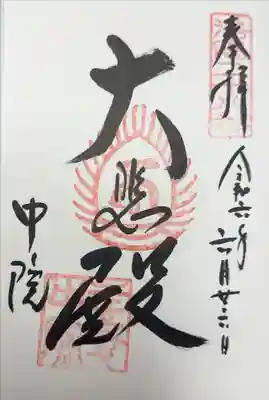 奉拝
令和六年六月廿六日
大悲殿
中院